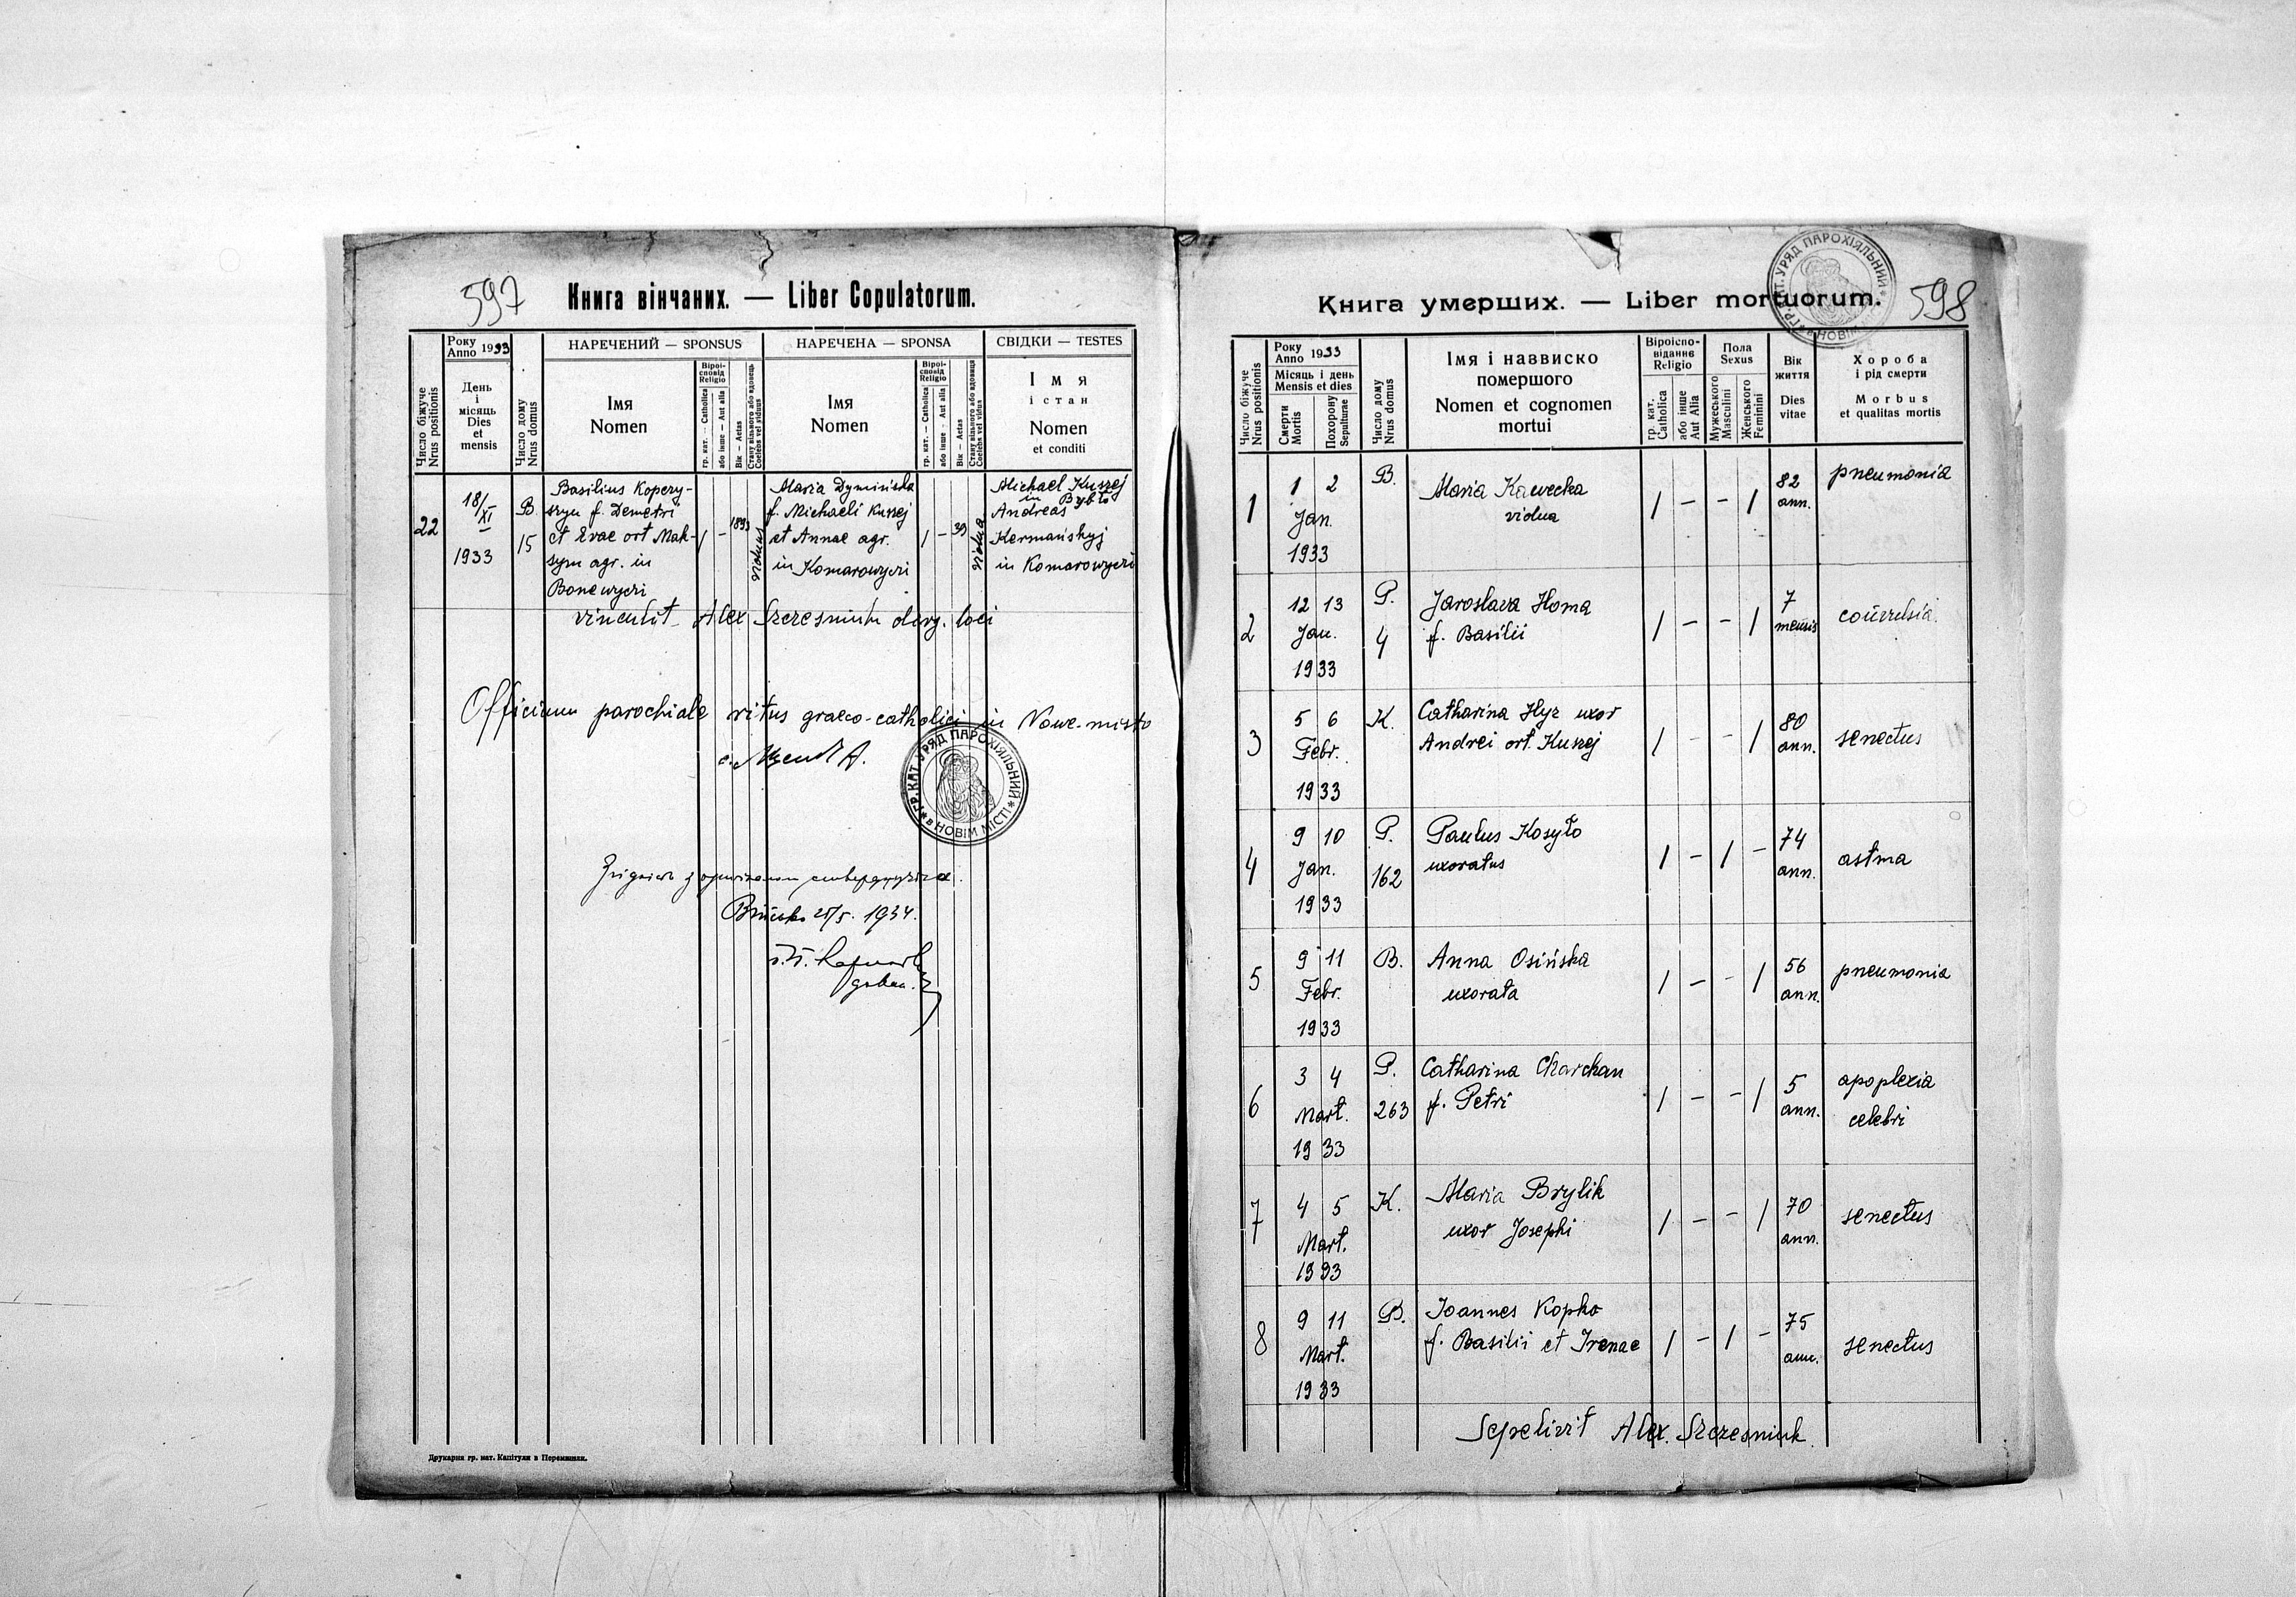 597
Книга вінчаних. — Liber Copulatorum.
Число біжуче
Nrus positionis
Року
Anno 1933
День
і
місяць
Dies
et
mensis
Число дому
Nrus domus
НАРЕЧЕНИЙ — SPONSUS
Імя
Nomen
Віроі-
сповід
Religio
гр. кат. — Catholica
або інше — Aut alia
Вік — Aetas
Стану вільного або вдовець
Coelebs vel viduus
НАРЕЧЕНА — SPONSA
Імя
Nomen
Віроі-
сповід
Religio
гр. кат. — Catholica
або інше - Aut alia
Вік — Aetas
Стану вільного або вдовиця
Coelebs vel vidua
СВІДКИ — TESTES
Імя
і стан
Nomen
et conditi
22
18/XI
1933
B.
15
Basilius Kopery-
f. Demetri
et Evae ort Mak-
sym agr. in
Bonewyczi
/ —
1893
viduus
Maria Dymińska
f. Michaeli Kuszej
et Annae agr.
in Komarowyczi
/ —
39
vidua
Michael Kuszej
in Bybło
Andreas
Kermańskyj
in Komarowyczi
Alex Szczesniuk loci
Officium parochiale ritus graeco-catholici in Nowe-misto
ГР. КАТ. УРЯД ПАРОХІЯЛЬНИЙ
в НОВІМ МІСТІ
25/5. 1934.
Друкарня гр. кат. Капітули в Перемишли.
598
Книга умерших. — Liber mortuorum.
ГР. КАТ. УРЯД ПАРОХІЯЛЬНИЙ
в НОВІМ
Число біжуче
Nrus positionis
Року
Anno 1933
Місяць і день
Mensis et dies
Смерти
Mortis
Похорону
Sepulturae
Число дому
Nrus domus
Імя і наввиско
помершого
Nomen et cognomen
mortui
Віроіспо-
віданнє
Religio
гр. кат.
Catholica
або інше
Aut Alia
Пола
Sexus
Мужеського
Masculini
Женського
Feminini
Вік
життя
Dies
vitae
Хороба
і рід смерти
Morbus
et qualitas mortis
1
1 2
Jan.
1933
B.
Maria Kawecka
vidua
/ — — /
82
ann.
pneumonia
2
12 13
Jan.
1933
P.
4
Jaroslava Homa
f. Basilii
/ — — /
7
mensis
3
5 6
Febr.
1933
K.
Catharina Hyz uxor
Andrei ort. Kuszej
/ — — /
80
ann.
senectus
4
9 10
Jan.
1933
P.
162
Paulus Kosyło
uxoratus
/ — / —
74
ann.
astma
5
9 11
Febr.
1933
B.
Anna Osińska
uxorata
/ — — /
56
ann.
pneumonia
6
3 4
Mart.
1933
P.
263
Catharina Charchan
f. Petri
/ — — /
5
ann.
apoplexia
celebri
7
4 5
Mart.
1933
K.
Maria Brylik
uxor Josephi
/ — — /
70
ann.
senectus
8
9 11
Mart.
1933
B.
Joannes Kopko
f. Basilii et Irenae
/ — / —
75
ann.
senectus
Sepelivit Alex. Szczesniuk